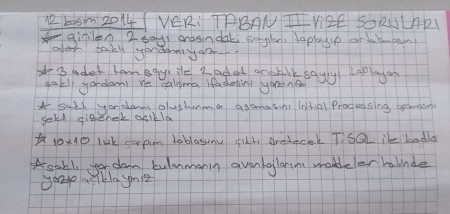 12 kasım 2014 / VERİ TABAN II VİZE SORULARI
* girilen 2 sayı arasındaki sayıları toplayıp ortalamasını
alan saklı yordamı yaz.
* 3 adet tam sayı ile 2 adet ondalık sayıyı toplayan
saklı yordamı ve çalışma ifadesini yazınız
* saklı yordamı oluşturma aşamasını Initial Processing aşamasını
şekil çizerek açıkla
* 10x10 luk çarpım tablosunu çıktı üretecek TSQL ile kodla
* saklı yordam kullanmanın avantajlarını maddeler halinde
yazıp açıklayınız